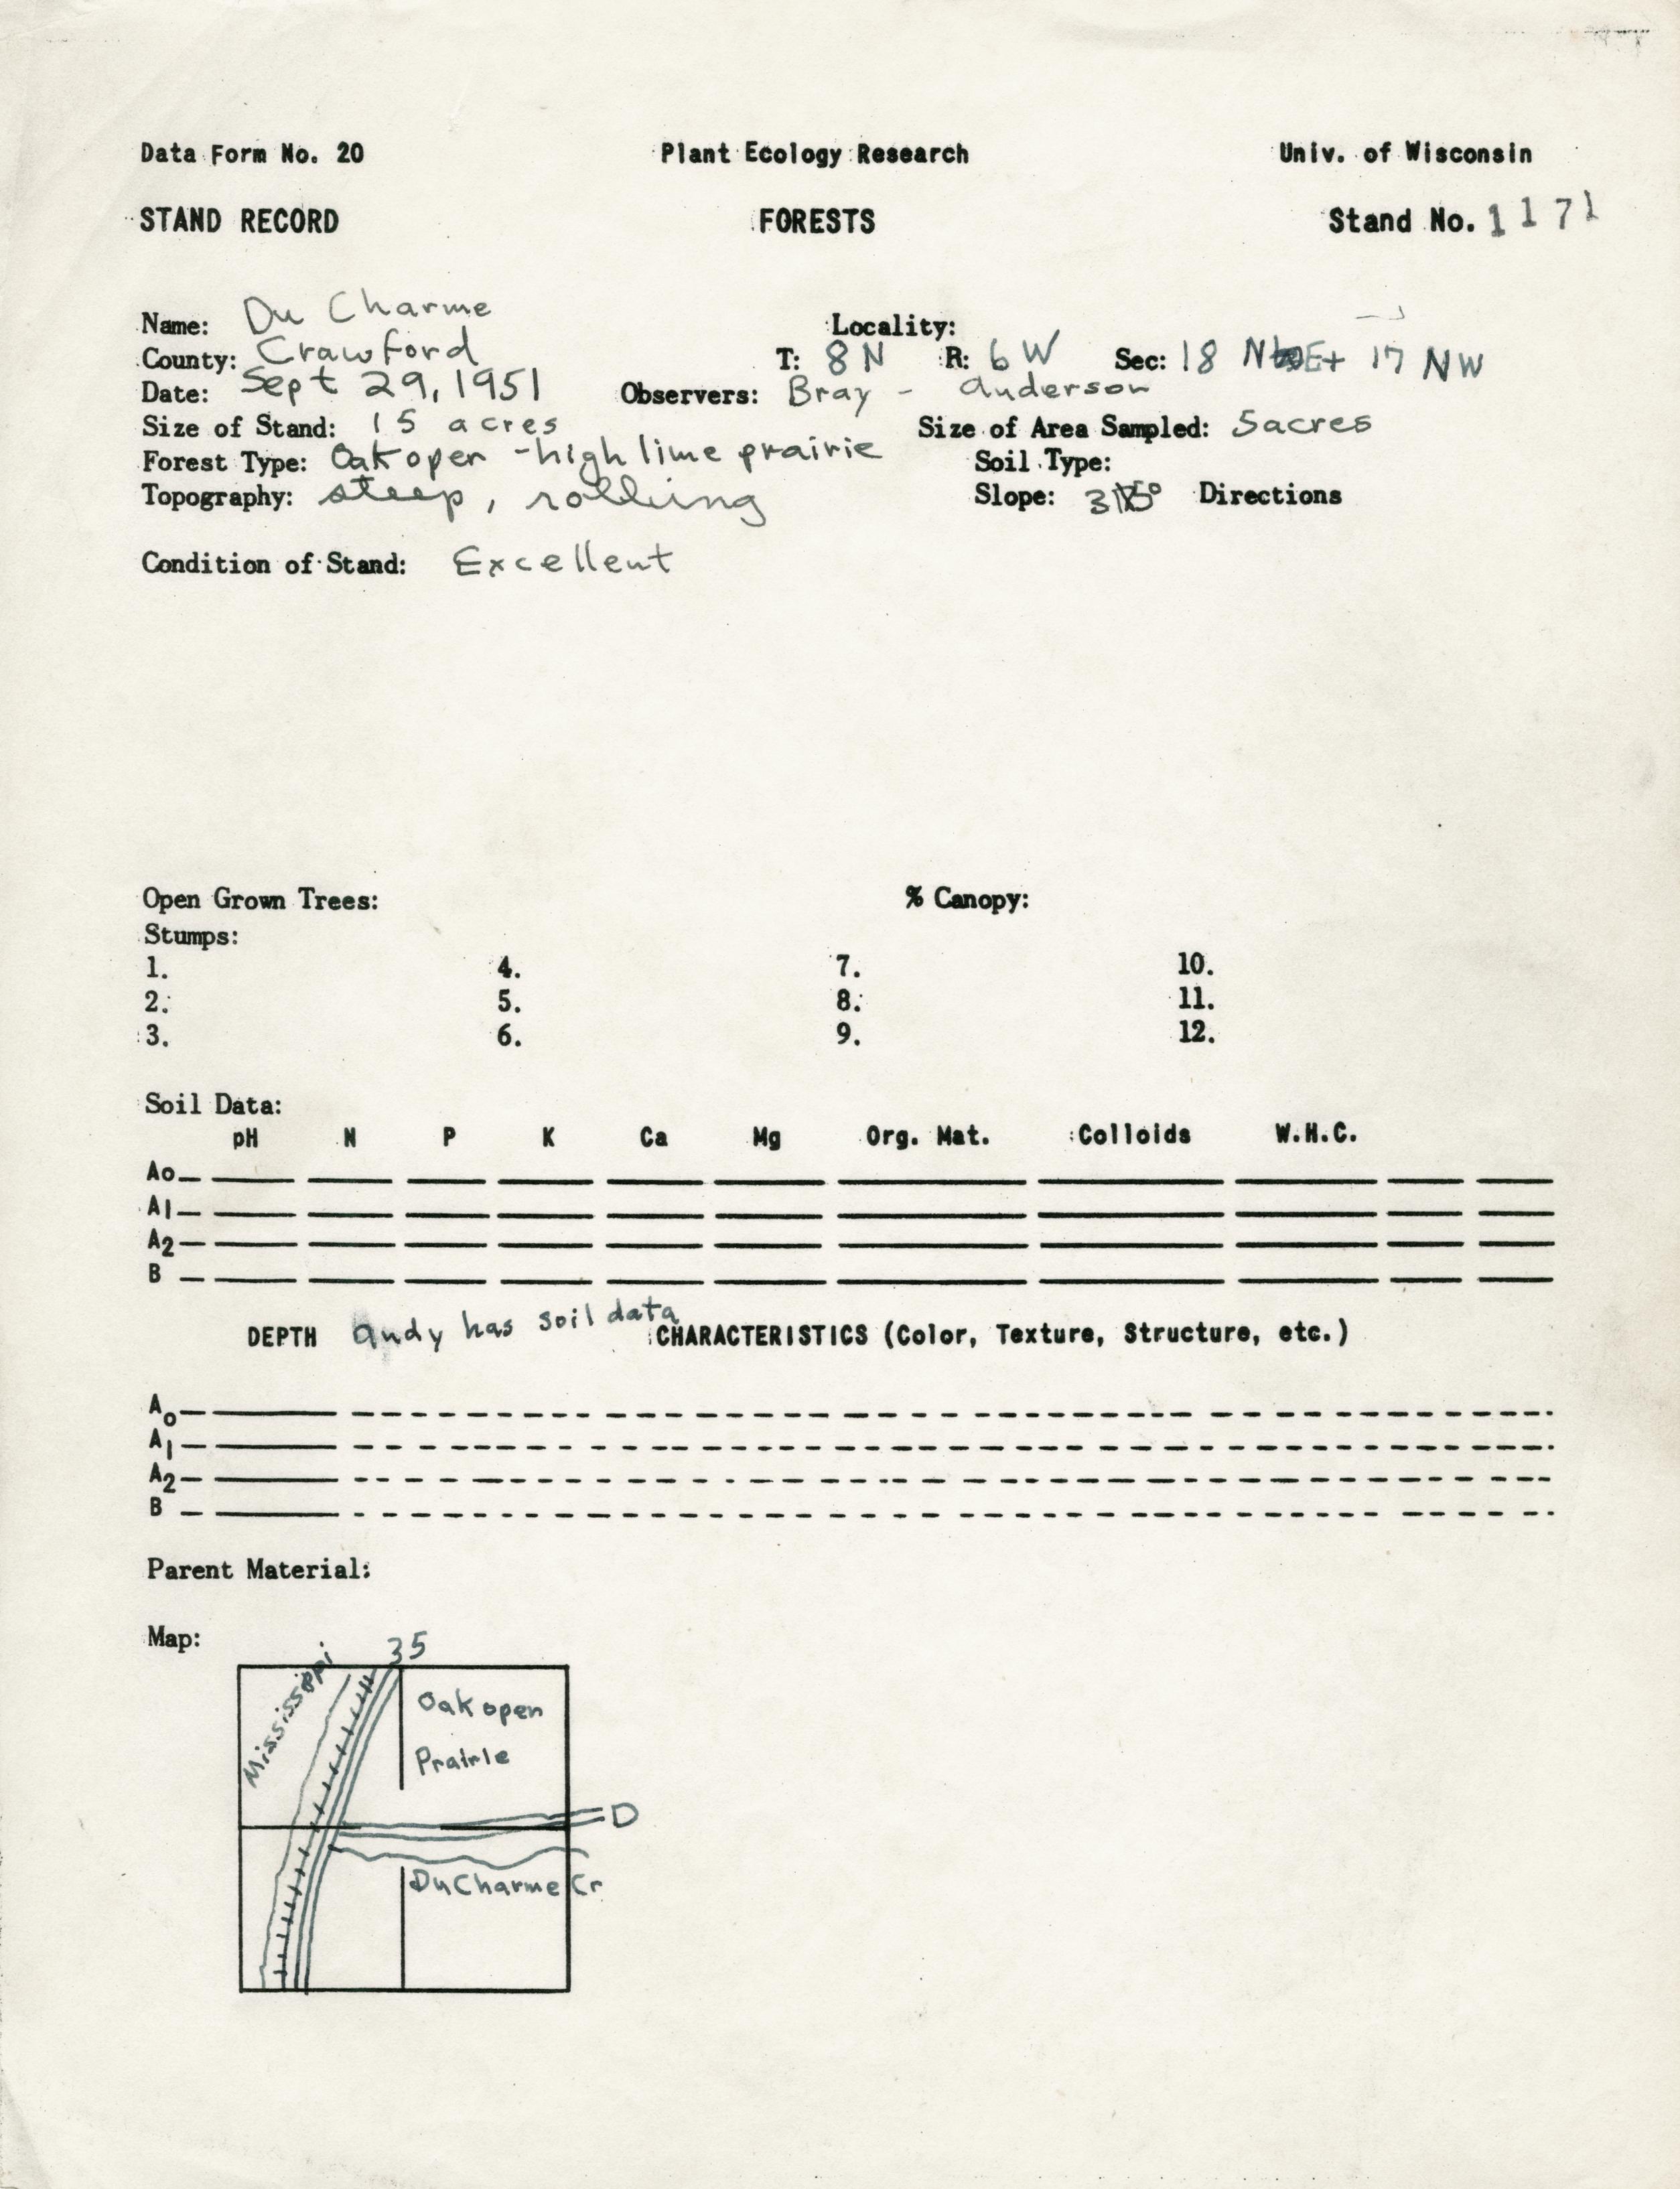 Data Form No. 20 Plant Ecology Research Univ. of Wisconsin
STAND RECORD FORESTS Stand No. 1171
Name: Du Charme Locality:
County: Crawford T: 8N R: 6W Sec: 18 NE + 17 NW
Date: Sept 29, 1951 Observers: Bray - Anderson
Size of Stand: 15 acres Size of Area Sampled: 5acres
Forest Type: Oak open - high lime prairie Soil Type:
Topography: steep, rolling Slope: Directions
Condition of Stand: Excellent
Open Grown Trees: % Canopy:
Stumps:
1. 4. 7. 10.
2. 5. 8. 11.
3. 6. 9. 12.
Soil Data:
pH N P K Ca Mg Org. Mat. Colloids W.H.C.
Ao
A1
A2
B
DEPTH Andy has soil data CHARACTERISTICS (Color, Texture, Structure, etc.)
Ao
A1
A2
B
Parent Material:
Map:
35
Mississippi
Oak open
Prairie
D
DuCharme Cr